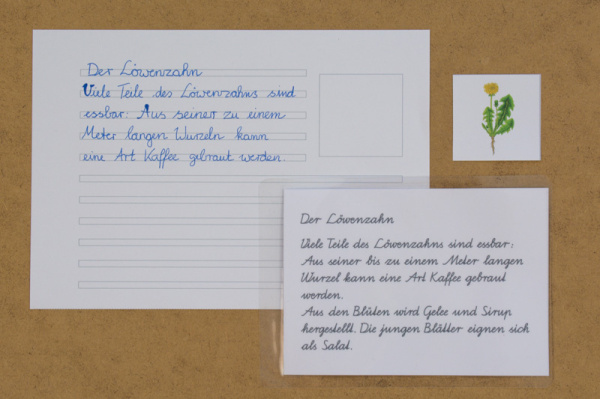 Der Löwenzahn
Viele Teile des Löwenzahns sind
essbar: Aus seiner zu einem
Meter langen Wurzeln kann
eine Art Kaffee gebraut werden.
Der Löwenzahn
Viele Teile des Löwenzahns sind essbar:
Aus seiner bis zu einem Meter langen
Wurzel kann eine Art Kaffee gebraut
werden.
Aus den Blüten wird Gelee und Sirup
hergestellt. Die jungen Blätter eignen sich
als Salat.